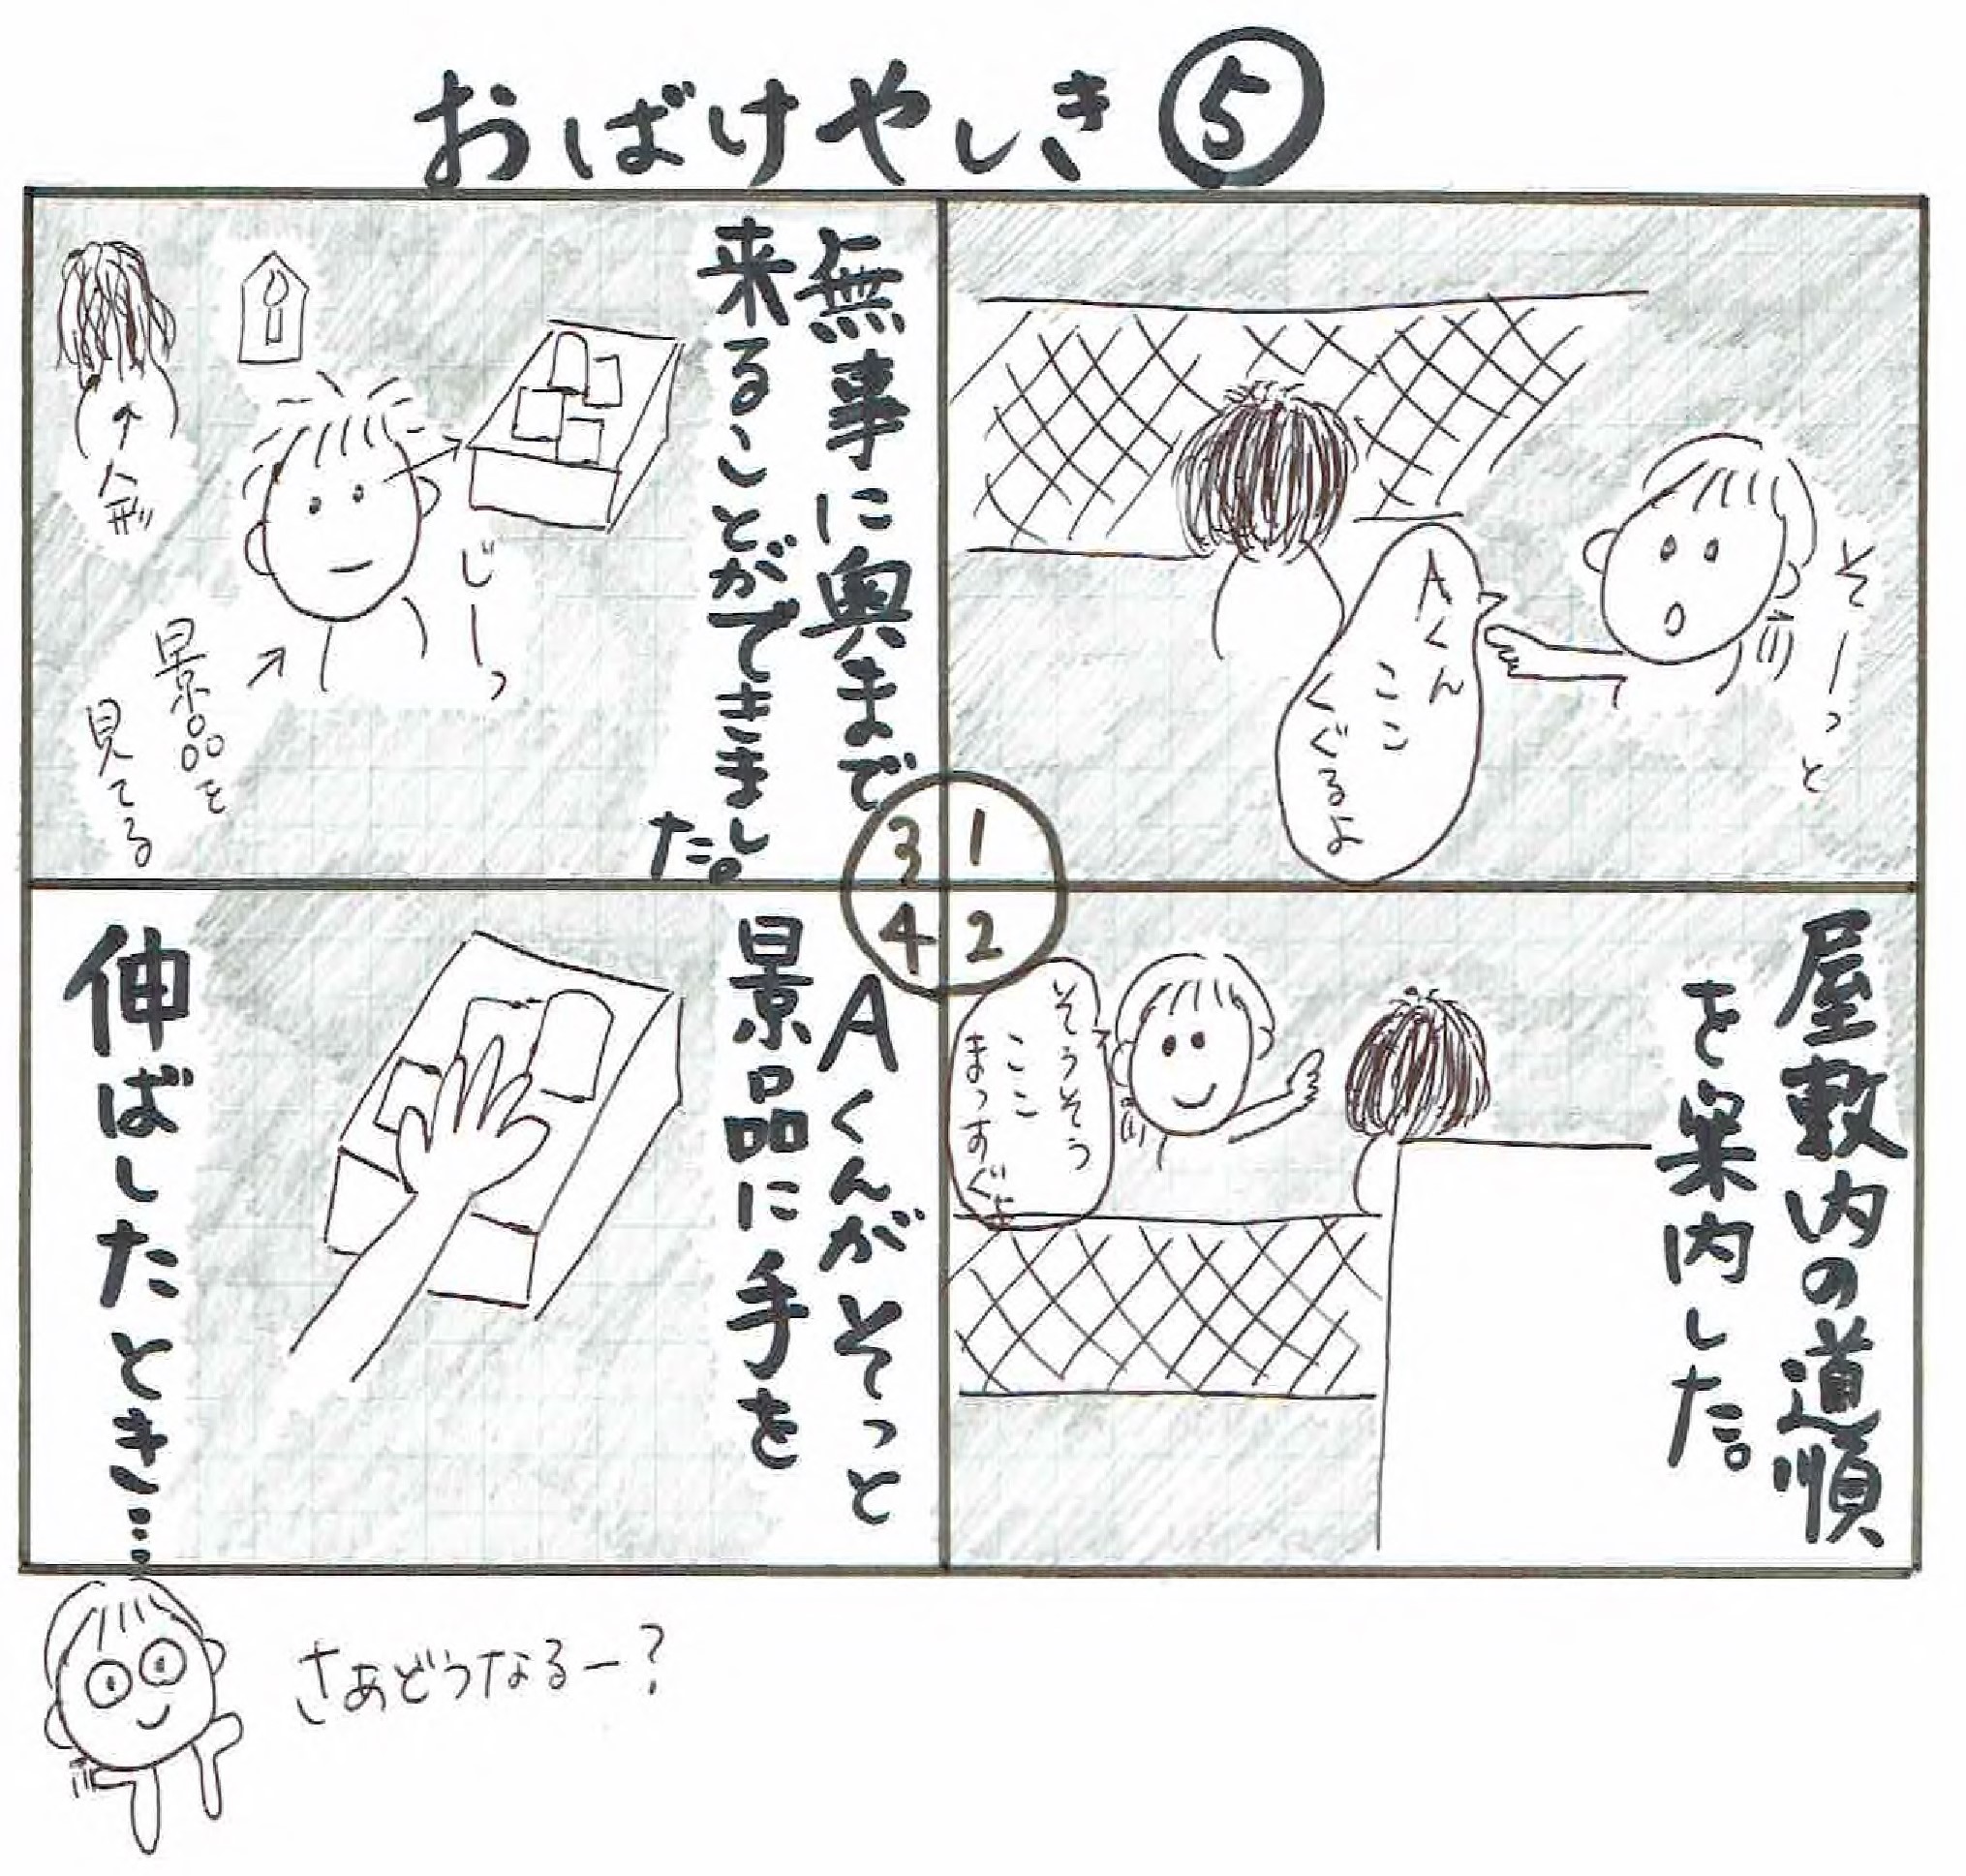 おばけやしき⑤
そーっと
Aくん
ここ
くぐるよ
1
屋敷内の道順
を案内した。
そうそう
ここ
まっすぐよ
2
無事に奥まで
来ることができまし
た。
じーっ
人形
景品を
見てる
3
Aくんがそっと
景品に手を
伸ばしたとき…
4
さあどうなるー?